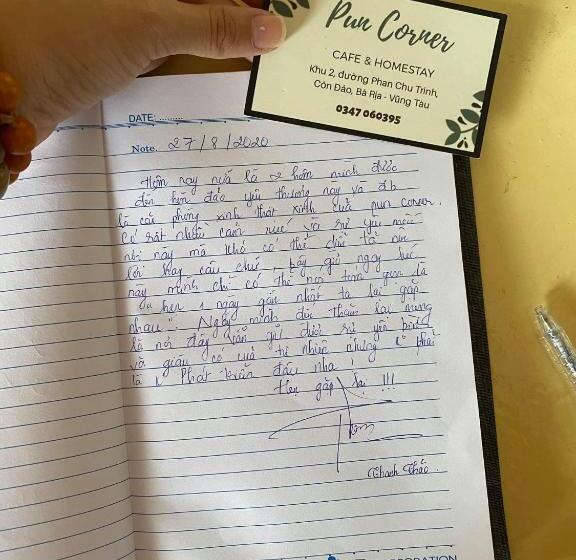 Pun Corner
CAFE & HOMESTAY
Khu 2, đường Phan Chu Trinh,
Côn Đảo, Bà Rịa - Vũng Tàu
0347 060395
DATE:
Note. 27/8/2020
Hôm nay nữa là 2 hôm mình được
đến hòn đảo yêu thương này và đb
là căn phòng xinh thật xinh của pun corner.
Có rất nhiều cảm xúc và sự yêu mến
nơi này mà khó có thể diễn tả nên
lời hay câu chữ, bây giờ ngay lúc
này mình chỉ có thể nói tóm gọn là
" hẹn 1 ngày gần nhất ta lại gặp
nhau". Ngày mình đến thăm lại mong
là nơi đây vẫn giữ được sự yên bình
và giàu có của tự nhiên nhưng phải
là " Phát triển đấu nha !
Hẹn gặp lại !!!
Thanh Thảo.